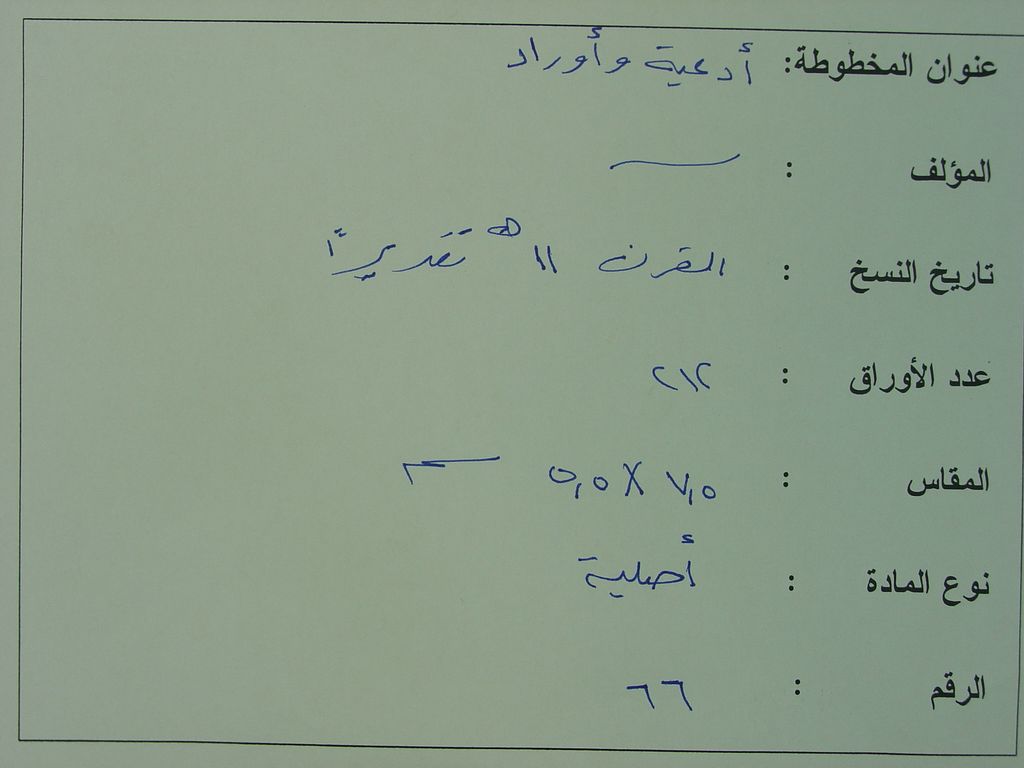 عنوان المخطوطة: أدعية وأوراد
المؤلف : ـــــ
تاريخ النسخ : القرن ١١ هـ تقديرًا
عدد الأوراق : ٢١٢
المقاس : ٧,٥ X ٥,٥ سم
نوع المادة : أصلية
الرقم : ٦٦